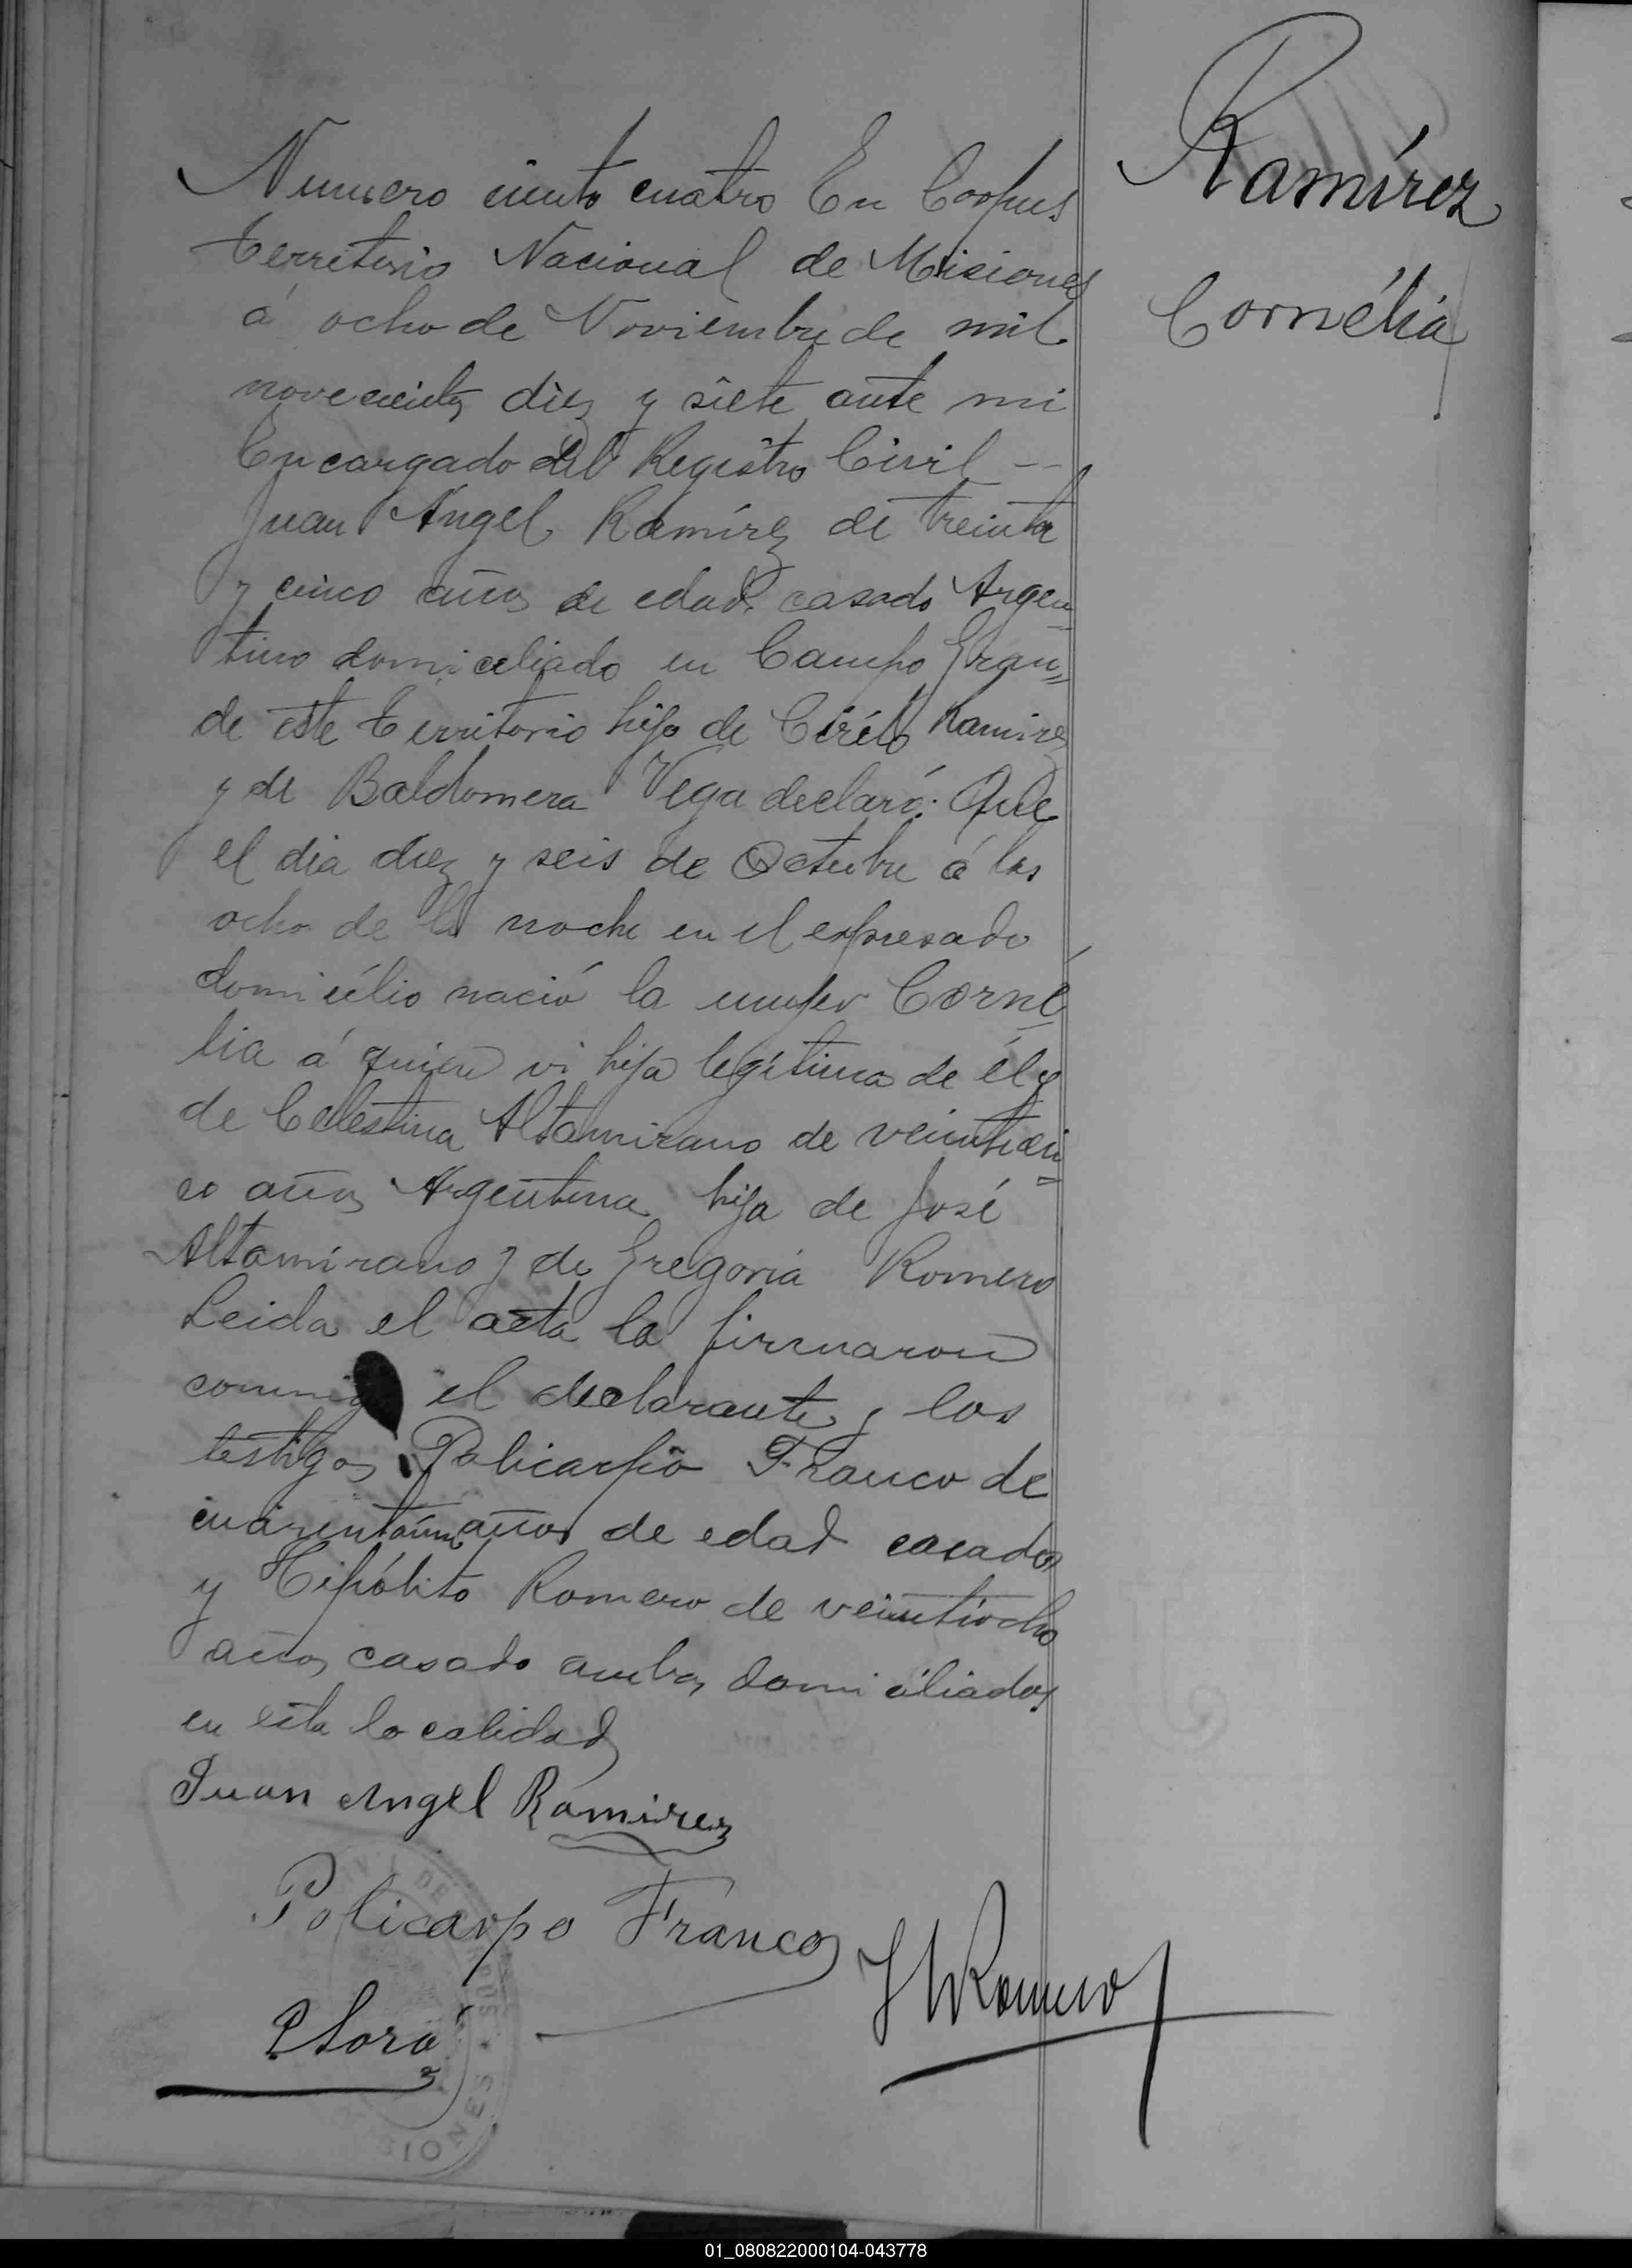 Numero ciento cuatro En Corpus
Territorio Nacional de Misiones
á ocho de Noviembre de mil
novecientos diez y siete ante mi
Encargado del Registro Civil --
Juan Angel Ramírez de treinta
y cinco años de edad casado Argen-
tino domiciliado en Campo Gran=
de este Territorio hijo de Ramirez
y de Baldomera Vega declaró: Que
el dia diez y seis de Octubre á las
ocho de la noche en el expresado
domicílio nació la mujer Corné
lia á quien vi hija legítima de él y
de Celestina Altamirano de veinticin=
co años Argentina hija de José
Altamirano y de Gregoria Romero
Leida el acta la firmaron
conmigo el declarante y los
testigos Policarpio Franco de
cuarentaiun años de edad casado
y Hipólito Romero de veintiocho
años casado ambos domiciliados
en esta localidad
Juan Angel Ramirez
Policarpo Franco
H Romero
Ramírez
Cornélia
01_080822000104-043778